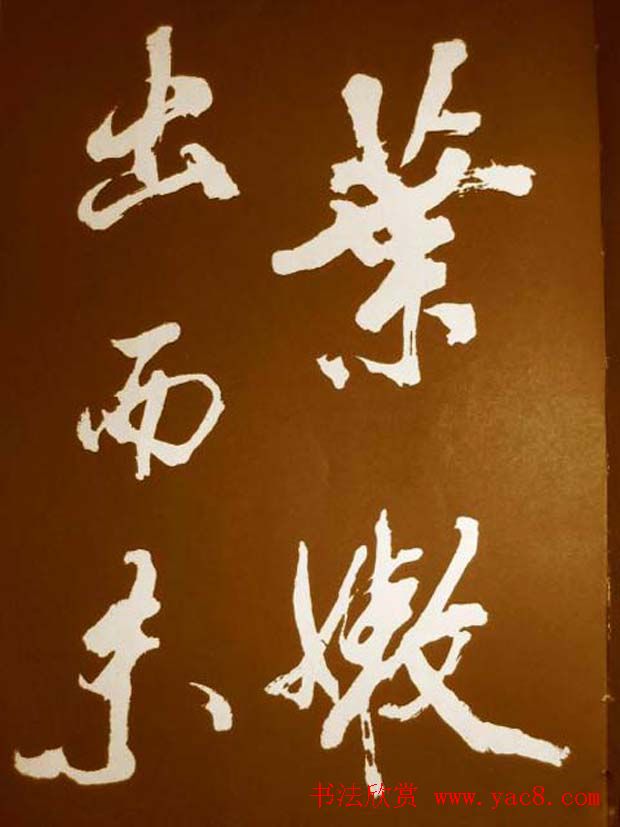 葉嫩
出而未
书法欣赏 www.yac8.com